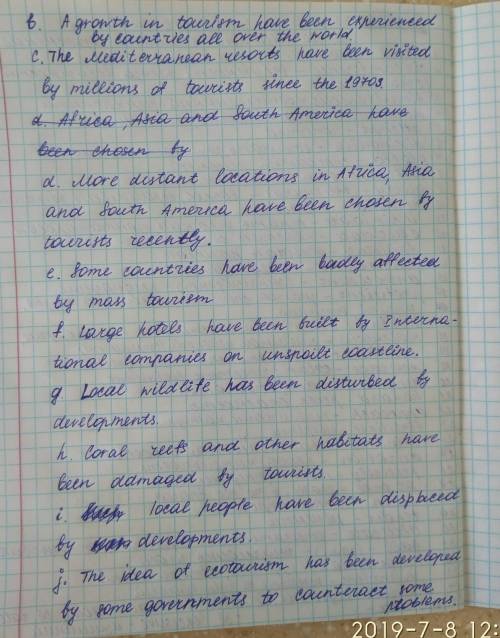 b. A growth in tourism have been experienced
by countries all over the world.
c. The Mediterranean resorts have been visited
by millions of tourists since the 1970s.
d. Africa, Asia and South America have
been chosen by
d. More distant locations in Africa, Asia
and South America have been chosen by
tourists recently.
e. Some countries have been badly affected
by mass tourism
f. Large hotels have been built by Interna-
tional companies on unspoilt coastline.
g. Local wildlife has been disturbed by
developments.
h. Coral reefs and other habitats have
been damaged by tourists.
i. local people have been displaced
by developments.
j. The idea of ecotourism has been developed
by some governments to counteract some
problems.
2019-7-8 12: